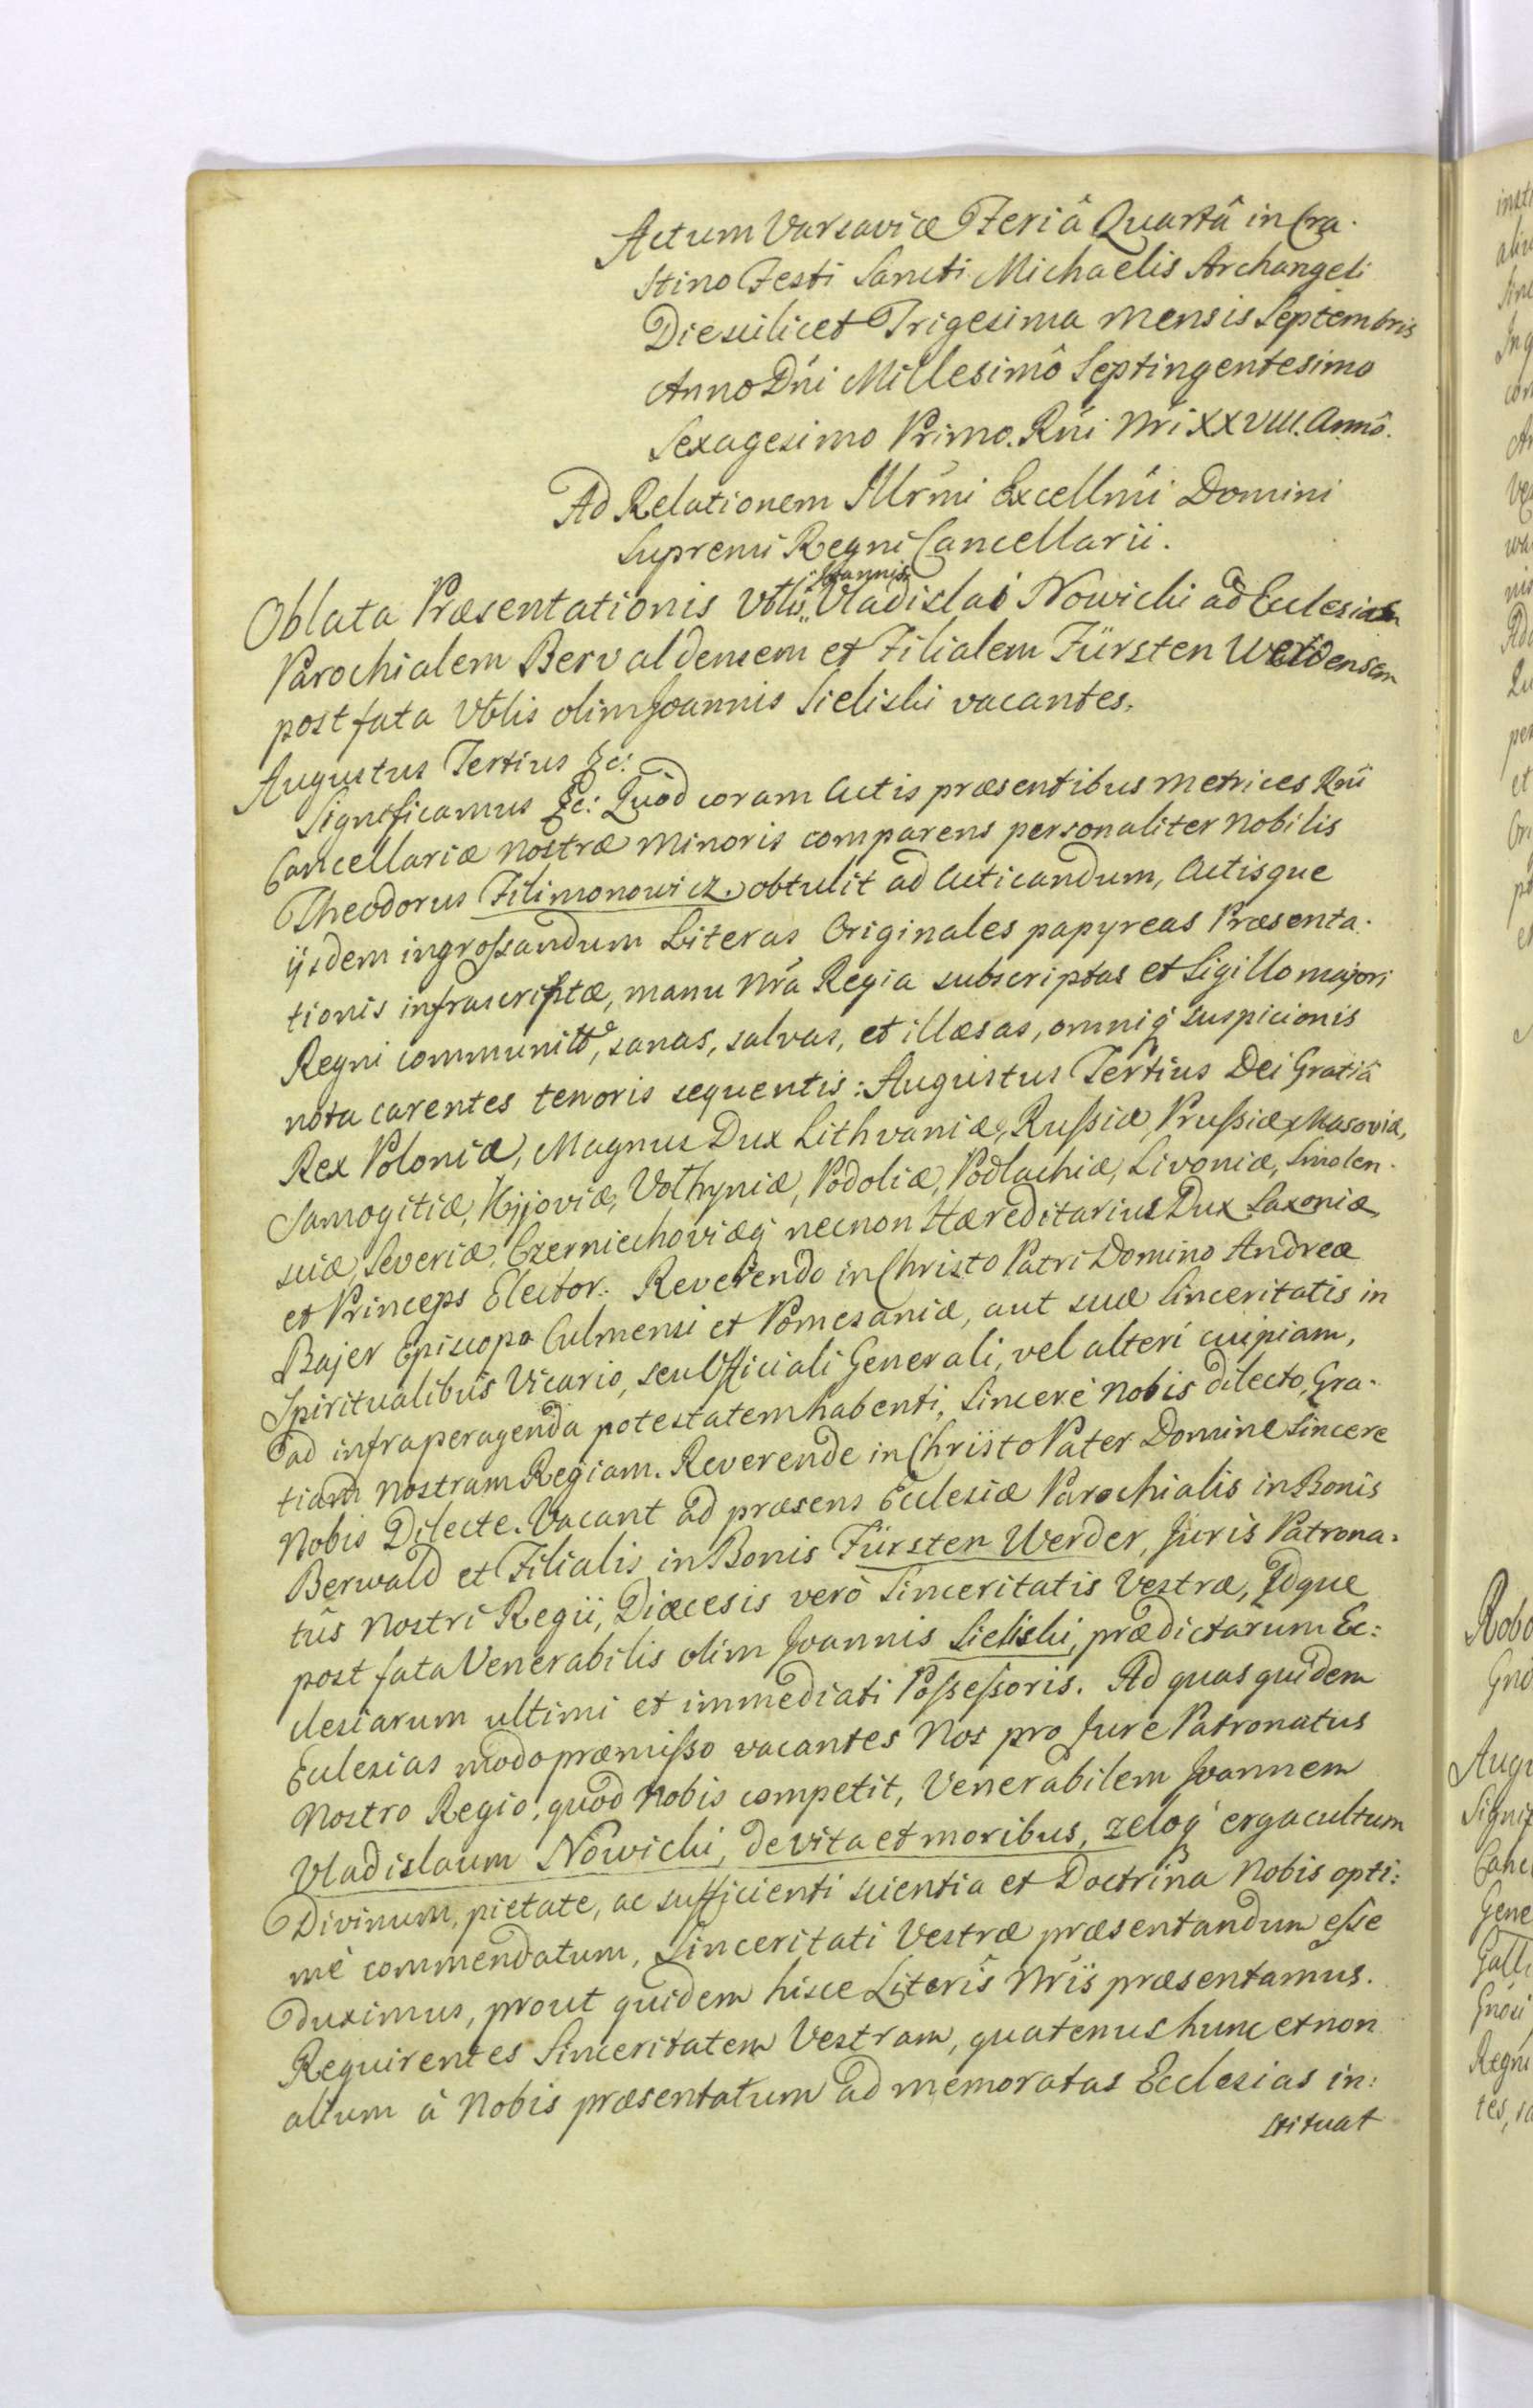 Actum Varsaviæ Feriâ Quartâ in Cra.
stino Festi Sancti Michaelis Archangeli
Die scilicet Trigesima mensis Septembris
Anno Dni Millesimô Septingentesimo
Sexagesimo Primo. Rni Nri XXVIII. Annô.
Ad Relationem Illrmi Excellmi Domini
Supremi Regni Cancellarii.
Oblata Præsentationis Vblis Joannis Vladislai Nowicki ad Ecclesiam
Parochialem Bervaldensem et Filialem Fürsten Werdensem
post fata Vblis olim Joannis Sielski vacantes.
Augustus Tertius &c:
Significamus &c: Quod coram Actis præsentibus Metrices Rni
Cancellariæ Nostræ Minoris comparens personaliter Nobilis
Theodorus Filimonowicz obtulit ad Acticandum, Actisque
ijsdem ingrossandum Literas Originales papyreas Præsenta.
tionis infrascriptæ, manu Nra Regia subscriptas et Sigillo majori
Regni communitas, sanas, salvas, et illæsas, omniq suspicionis
nota carentes tenoris sequentis: Augustus Tertius Dei Gratiâ
Rex Poloniæ, Magnus Dux Lithvaniæ, Russiæ, Prussiæ, Masoviæ,
Samogitiæ, Kijoviæ, Volhyniæ, Podoliæ, Podlachiæ, Livoniæ, Smolen.
sciæ, Severiæ, Czerniechoviæq necnon Hæreditarius Dux Saxoniæ
et Princeps Elector. Reverendo in Christo Patri Domino Andreæ
Bajer Episcopo Culmensi et Pomesaniæ, aut suæ Sinceritatis in
Spiritualibus Vicario, seu Officiali Generali, vel alteri cuipiam,
ad infraperagenda potestatem habenti, Sincere Nobis dilecto, Gra.
tiam Nostram Regiam. Reverende in Christo Pater Domine Sincere
Nobis Dilecte. Vacant ad præsens Ecclesiæ Parochialis in Bonis
Berwald et Filialis in Bonis Fürsten Werder, Juris Patrona.
tûs Nostri Regii, Diæcesis verò Sinceritatis Vestræ, Idque
post fata Venerabilis olim Joannis Sielski, prædictarum Ec:
clesiarum ultimi et immediati Possessoris. Ad quas quidem
Ecclesias modo præmisso vacantes Nos pro Jure Patronatus
Nostro Regio, quod Nobis competit, Venerabilem Joannem
Vladislaum Nowicki, de vita et moribus, zeloq erga cultum
Divinum, pietate, ac sufficienti scientia et Doctrina Nobis opti:
mè commendatum, Sinceritati Vestræ præsentandum esse
duximus, prout quidem hisce Literis Nris præsentamus.
Requirentes Sinceritatem Vestram, quatenus hunc et non
alium à Nobis præsentatum ad memoratas Ecclesias in:
stituat